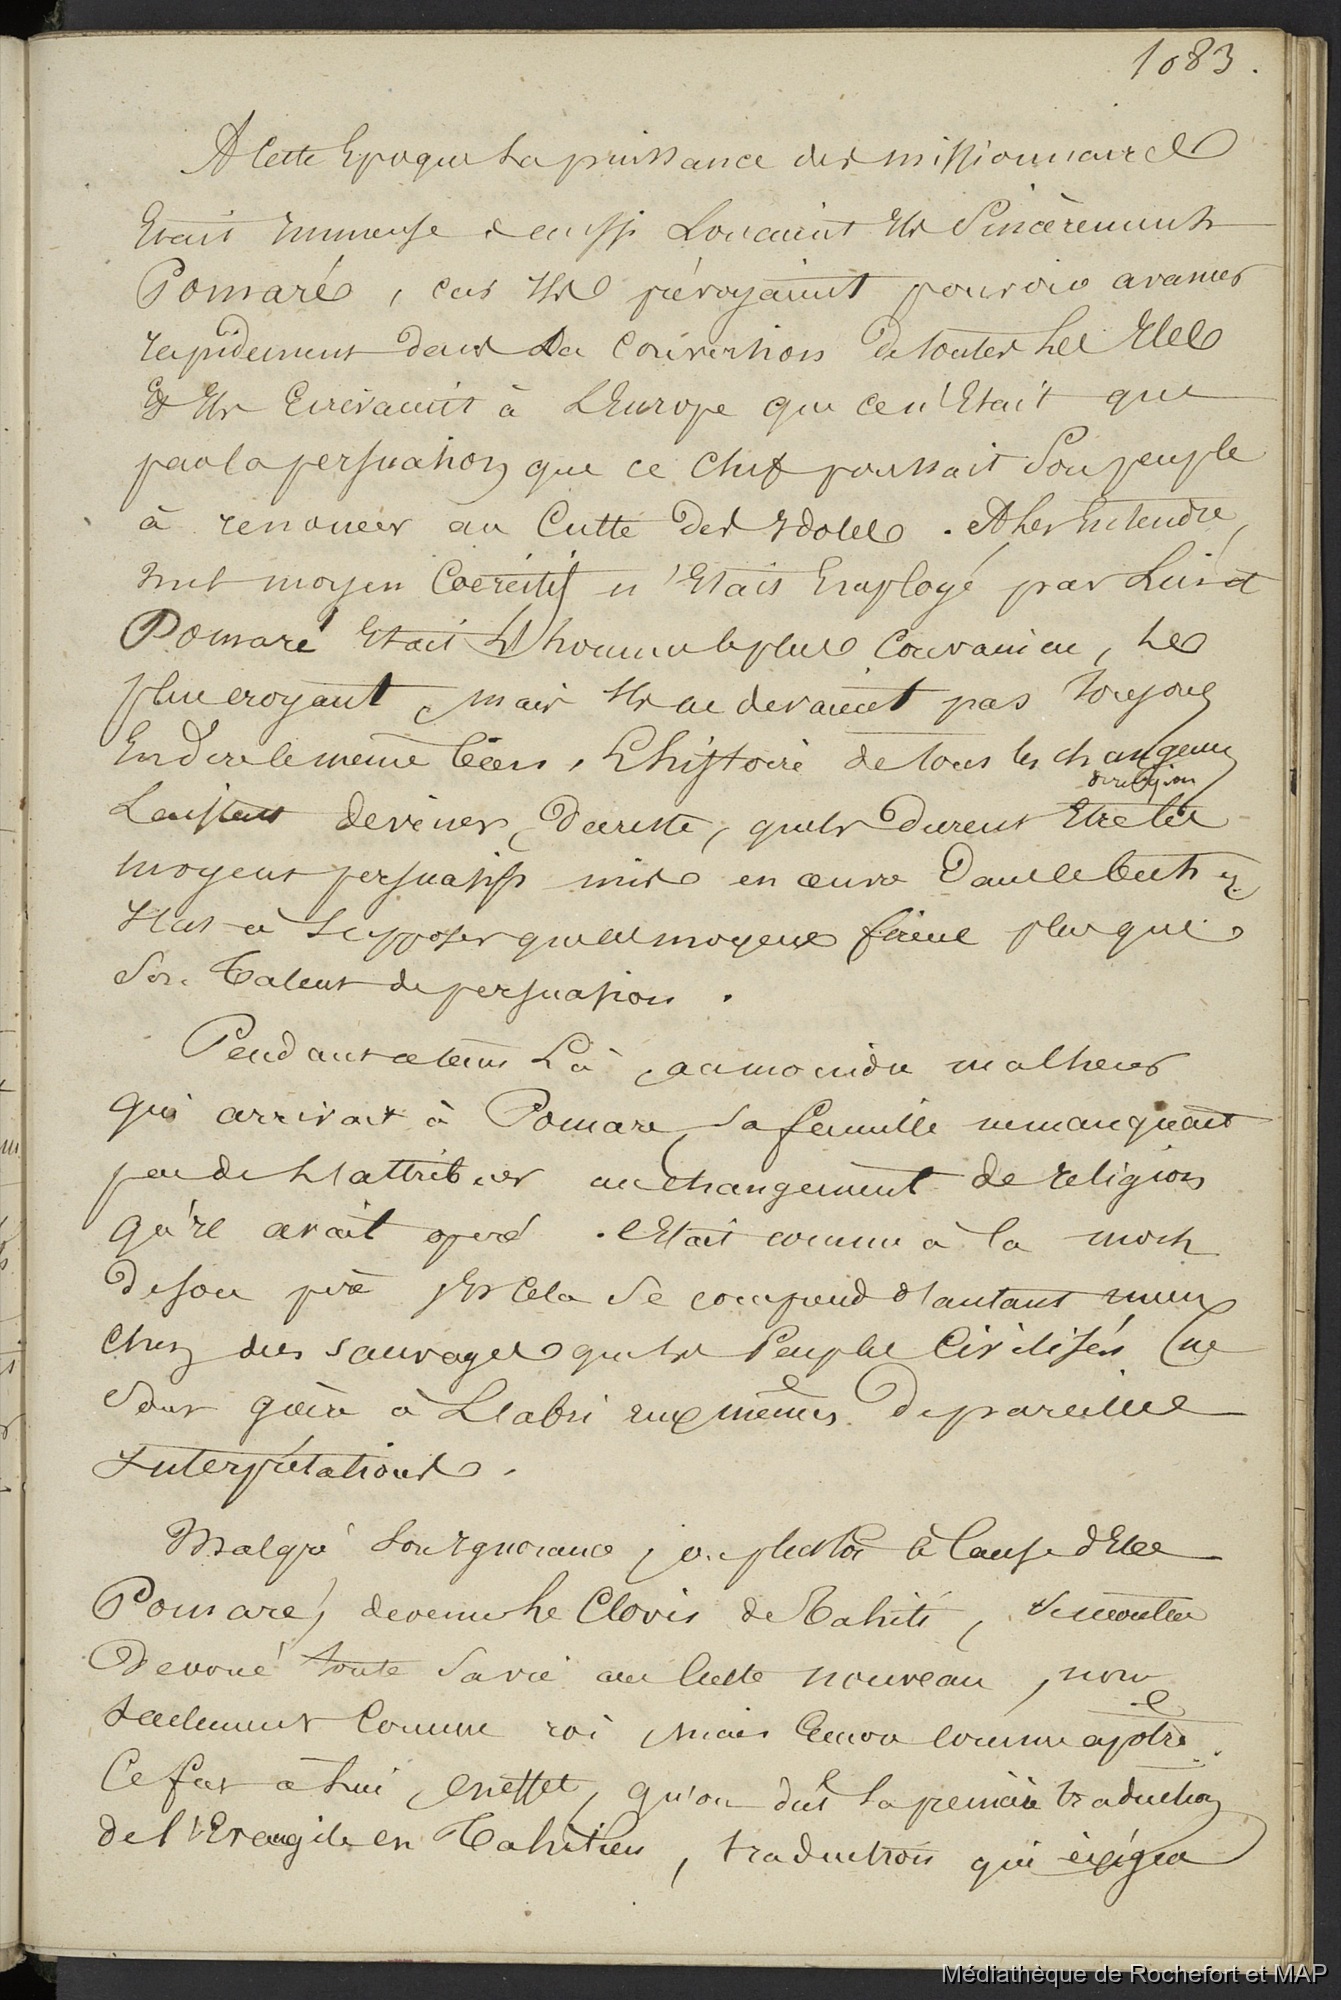 1083.
A Cette Epoque La puissance des missionnaires
Etait Immense & aussi Louaient Ils Sincèrement
Pomaré, car Ils prévoyaient pouvoir avancer
rapidement dans La Conversion de toutes Les Iles
Et Ils Ecrivaient à L'Europe que ce n'Etait que
par la persuation que ce Chef poussait Son peuple
à renoncer au Culte Des Idoles. A Les Entendre,
Nul moyen Coercitif n'Etait Employé par Lui et
Pomaré Etait L'homme le plus Convaincu, Le
plus croyant, mais Ils ne devaient pas Toujours
En dire le même bien, L'histoire de tous les changemens
de religion
Laissent deviner, Dereste, quels Durent Etre les
moyens persuasifs mis en œuvre Dans le but &
Il est à Supposer que les moyens firent plus que
Son Talent de persuasion.
Pendant ce tems Là, au moindre malheur
qui arrivait à Pomaré, Sa famille ne manquait
pas de L'attribuer au changement de religion
qu'Il avait opéré. C'Etait comme à la mort
De Son père Et Cela Se comprend d'autant mieux
Chez des Sauvages que Les Peuples Civilisés ne
Sont guère à L'abri eux mêmes De pareilles
Interprétations.
Malgré Son Ignorance, ou plutôt à Cause d'Elle
Pomaré, devenu Le Clovis de Tahiti, Se montra
Devoué toute Sa vie au Culte nouveau, non
Seulement Comme roi, mais Encore Comme apôtre.
Ce fut à Lui, En effet, qu'on dut La première traduction
de l'Evangile en Tahitien, traduction qui éxigea